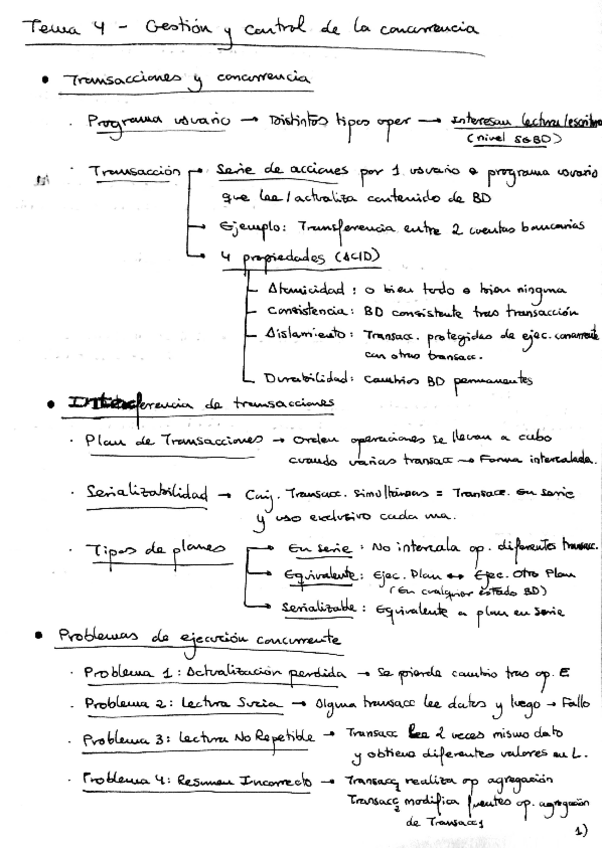 Tema 4 - Gestión y control de la concurrencia
• Transacciones y concurrencia
· Programa usuario → Distintos tipos oper → Interesan lectura/escritura
(nivel SGBD)
· Transacción → Serie de acciones por 1 usuario o programa usuario
que lee/actualiza contenido de BD
→ Ejemplo: Transferencia entre 2 cuentas bancarias
→ 4 propiedades (ACID)
Atomicidad: o bien todo o bien ninguna
Consistencia: BD consistente tras transacción
Aislamiento: Transacc. protegidas de ejec. concurrente
con otras transacc.
Durabilidad: Cambios BD permanentes
• Interferencia de transacciones
· Plan de Transacciones → Orden operaciones se llevan a cabo
cuando varias transacc → Forma intercalada.
· Serializabilidad → Conj. Transacc. simultáneas = Transacc. en serie
y uso exclusivo cada una.
· Tipos de planes → En serie: No intercala op. diferentes transacc.
→ Equivalente: Ejec. Plan ↔ Ejec. Otro Plan
(En cualquier estado BD)
→ Serializable: Equivalente a plan en serie
• Problemas de ejecución concurrente
· Problema 1: Actualización perdida → Se pierde cambio tras op. E
· Problema 2: Lectura Sucia → Alguna transacc lee datos y luego → Fallo
· Problema 3: Lectura No Repetible → Transacc lee 2 veces mismo dato
y obtiene diferentes valores en L.
· Problema 4: Resumen Incorrecto → Transacc1 realiza op agregación
Transacc2 modifica fuentes op. agregación
de Transacc1
1)